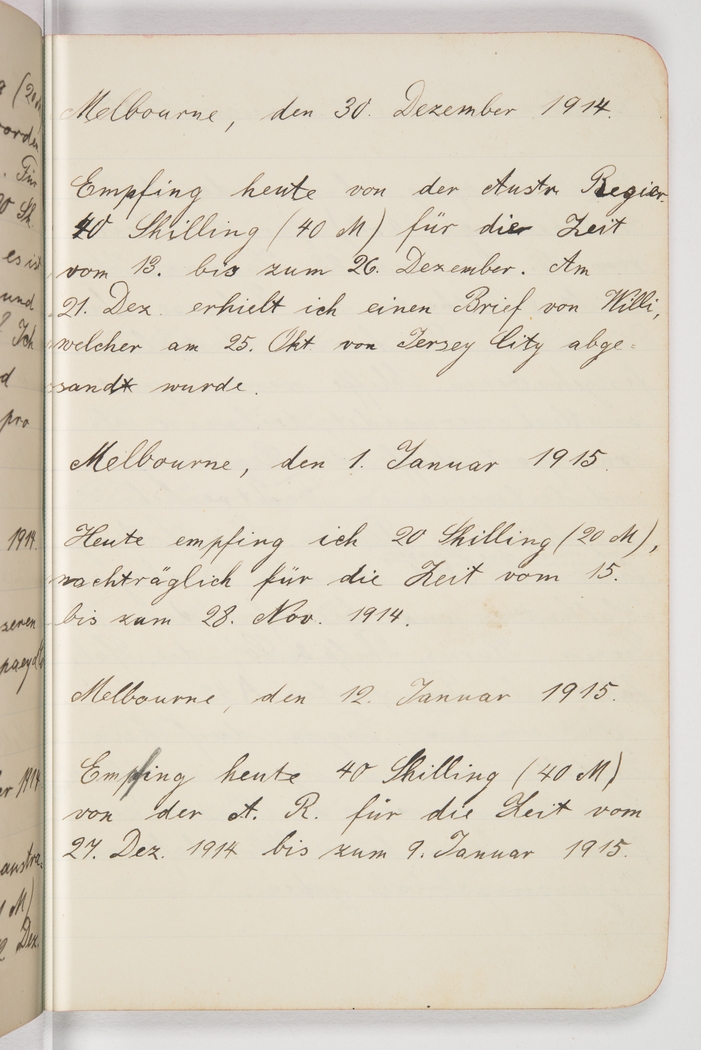 Melbourne, den 30. Dezember 1914.
Empfing heute von der Austr. Regier.
40 Shilling (40 M) für die Zeit
vom 13. bis zum 26. Dezember. Am
21. Dez. erhielt ich einen Brief von Willi,
welcher am 25. Okt. von Jersey City abge=
sandt wurde.
Melbourne, den 1. Januar 1915.
Heute empfing ich 20 Shilling (20 M),
nachträglich für die Zeit vom 15.
bis zum 28. Nov. 1914.
Melbourne, den 12. Januar 1915.
Empfing heute 40 Shilling (40 M)
von der A. R. für die Zeit vom
27. Dez. 1914 bis zum 9. Januar 1915.